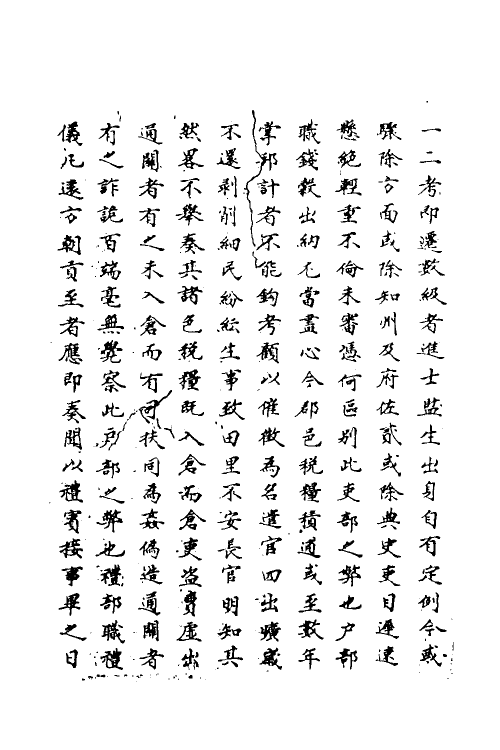 一二考即遷數級者進士監生出身自有定例今或
驟除方面或除知州及府佐貳或除典史吏目遲速
懸絶輕重不倫未審憑何區别此吏部之弊也户部
職錢糓出納尤當盡心今郡邑税糧積逋或至數年
掌邦計者不能鈎考顧以催徴為名遣官四出曠歲
不還剥削細民紛紜生事致田里不安長官明知其
然畧不舉奏其諸色税糧既入倉而倉吏盗賣虚出
通關者有之未入倉而有司扶同為姦偽造通關者
有之詐詭百端毫無覺察此户部之弊也禮部職禮
儀凡逺方朝貢至者應即奏聞以禮賓接事畢之日